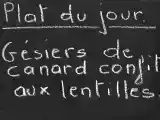 Plat du jour
Gesiers de
canard confit
aux lentilles